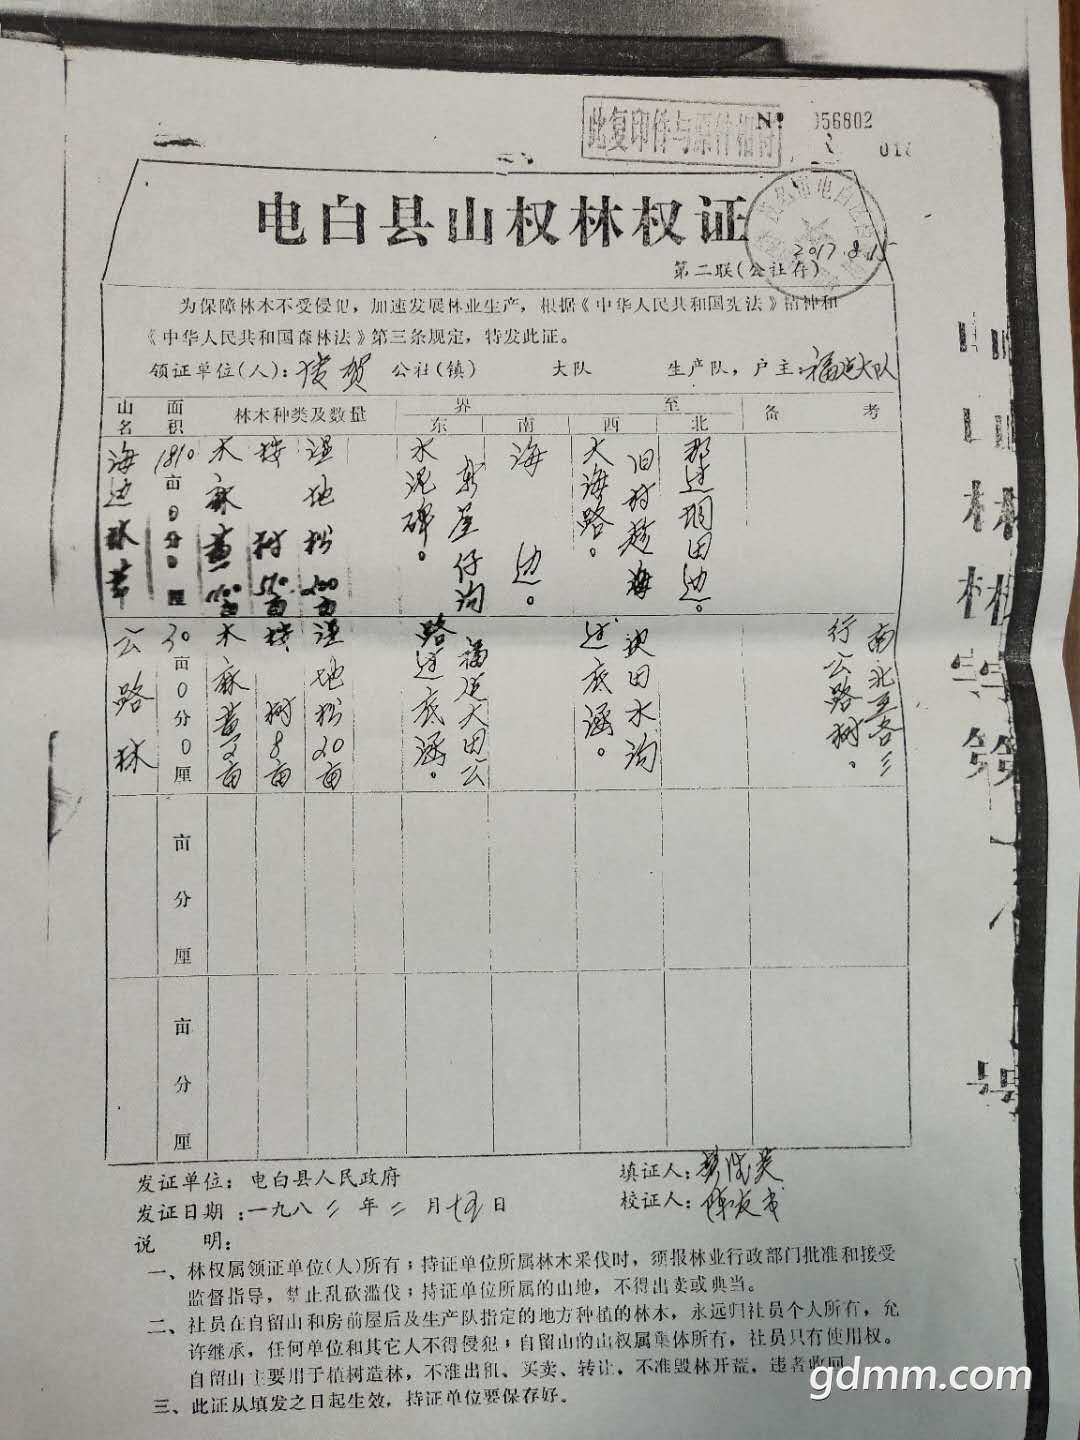 此复印件与原件相符
No 056802
2017.8.15
电白县山权林权证
第二联(公社存)
为保障林木不受侵犯，加速发展林业生产，根据《中华人民共和国宪法》精神和
《中华人民共和国森林法》第三条规定，特发此证。
领证单位(人)： 公社(镇) 大队 生产队，户主：福建大队
山名 面积 林木种类及数量 界至 备考
东 南 西 北
海边林 1810亩0分0厘 木麻黄 树 湿地松
水泥碑。 海边。 旧村趁海大海路。
公路林 30亩0分0厘 木麻黄2亩 树8亩 湿地松20亩
福建大田公路过底涵。 田水沟过底涵。 南北至各三行公路树。
亩 分 厘
亩 分 厘
发证单位：电白县人民政府
填证人：
发证日期：一九八二年二月十五日
校证人：陈友
说 明：
一、林权属领证单位(人)所有；持证单位所属林木采伐时，须报林业行政部门批准和接受
监督指导，禁止乱砍滥伐；持证单位所属的山地，不得出卖或典当。
二、社员在自留山和房前屋后及生产队指定的地方种植的林木，永远归社员个人所有，允
许继承，任何单位和其它人不得侵犯；自留山的山权属集体所有，社员只有使用权。
自留山主要用于植树造林，不准出租、买卖、转让，不准毁林开荒，违者收回。
三、此证从填发之日起生效，持证单位要保存好。
gdmm.com